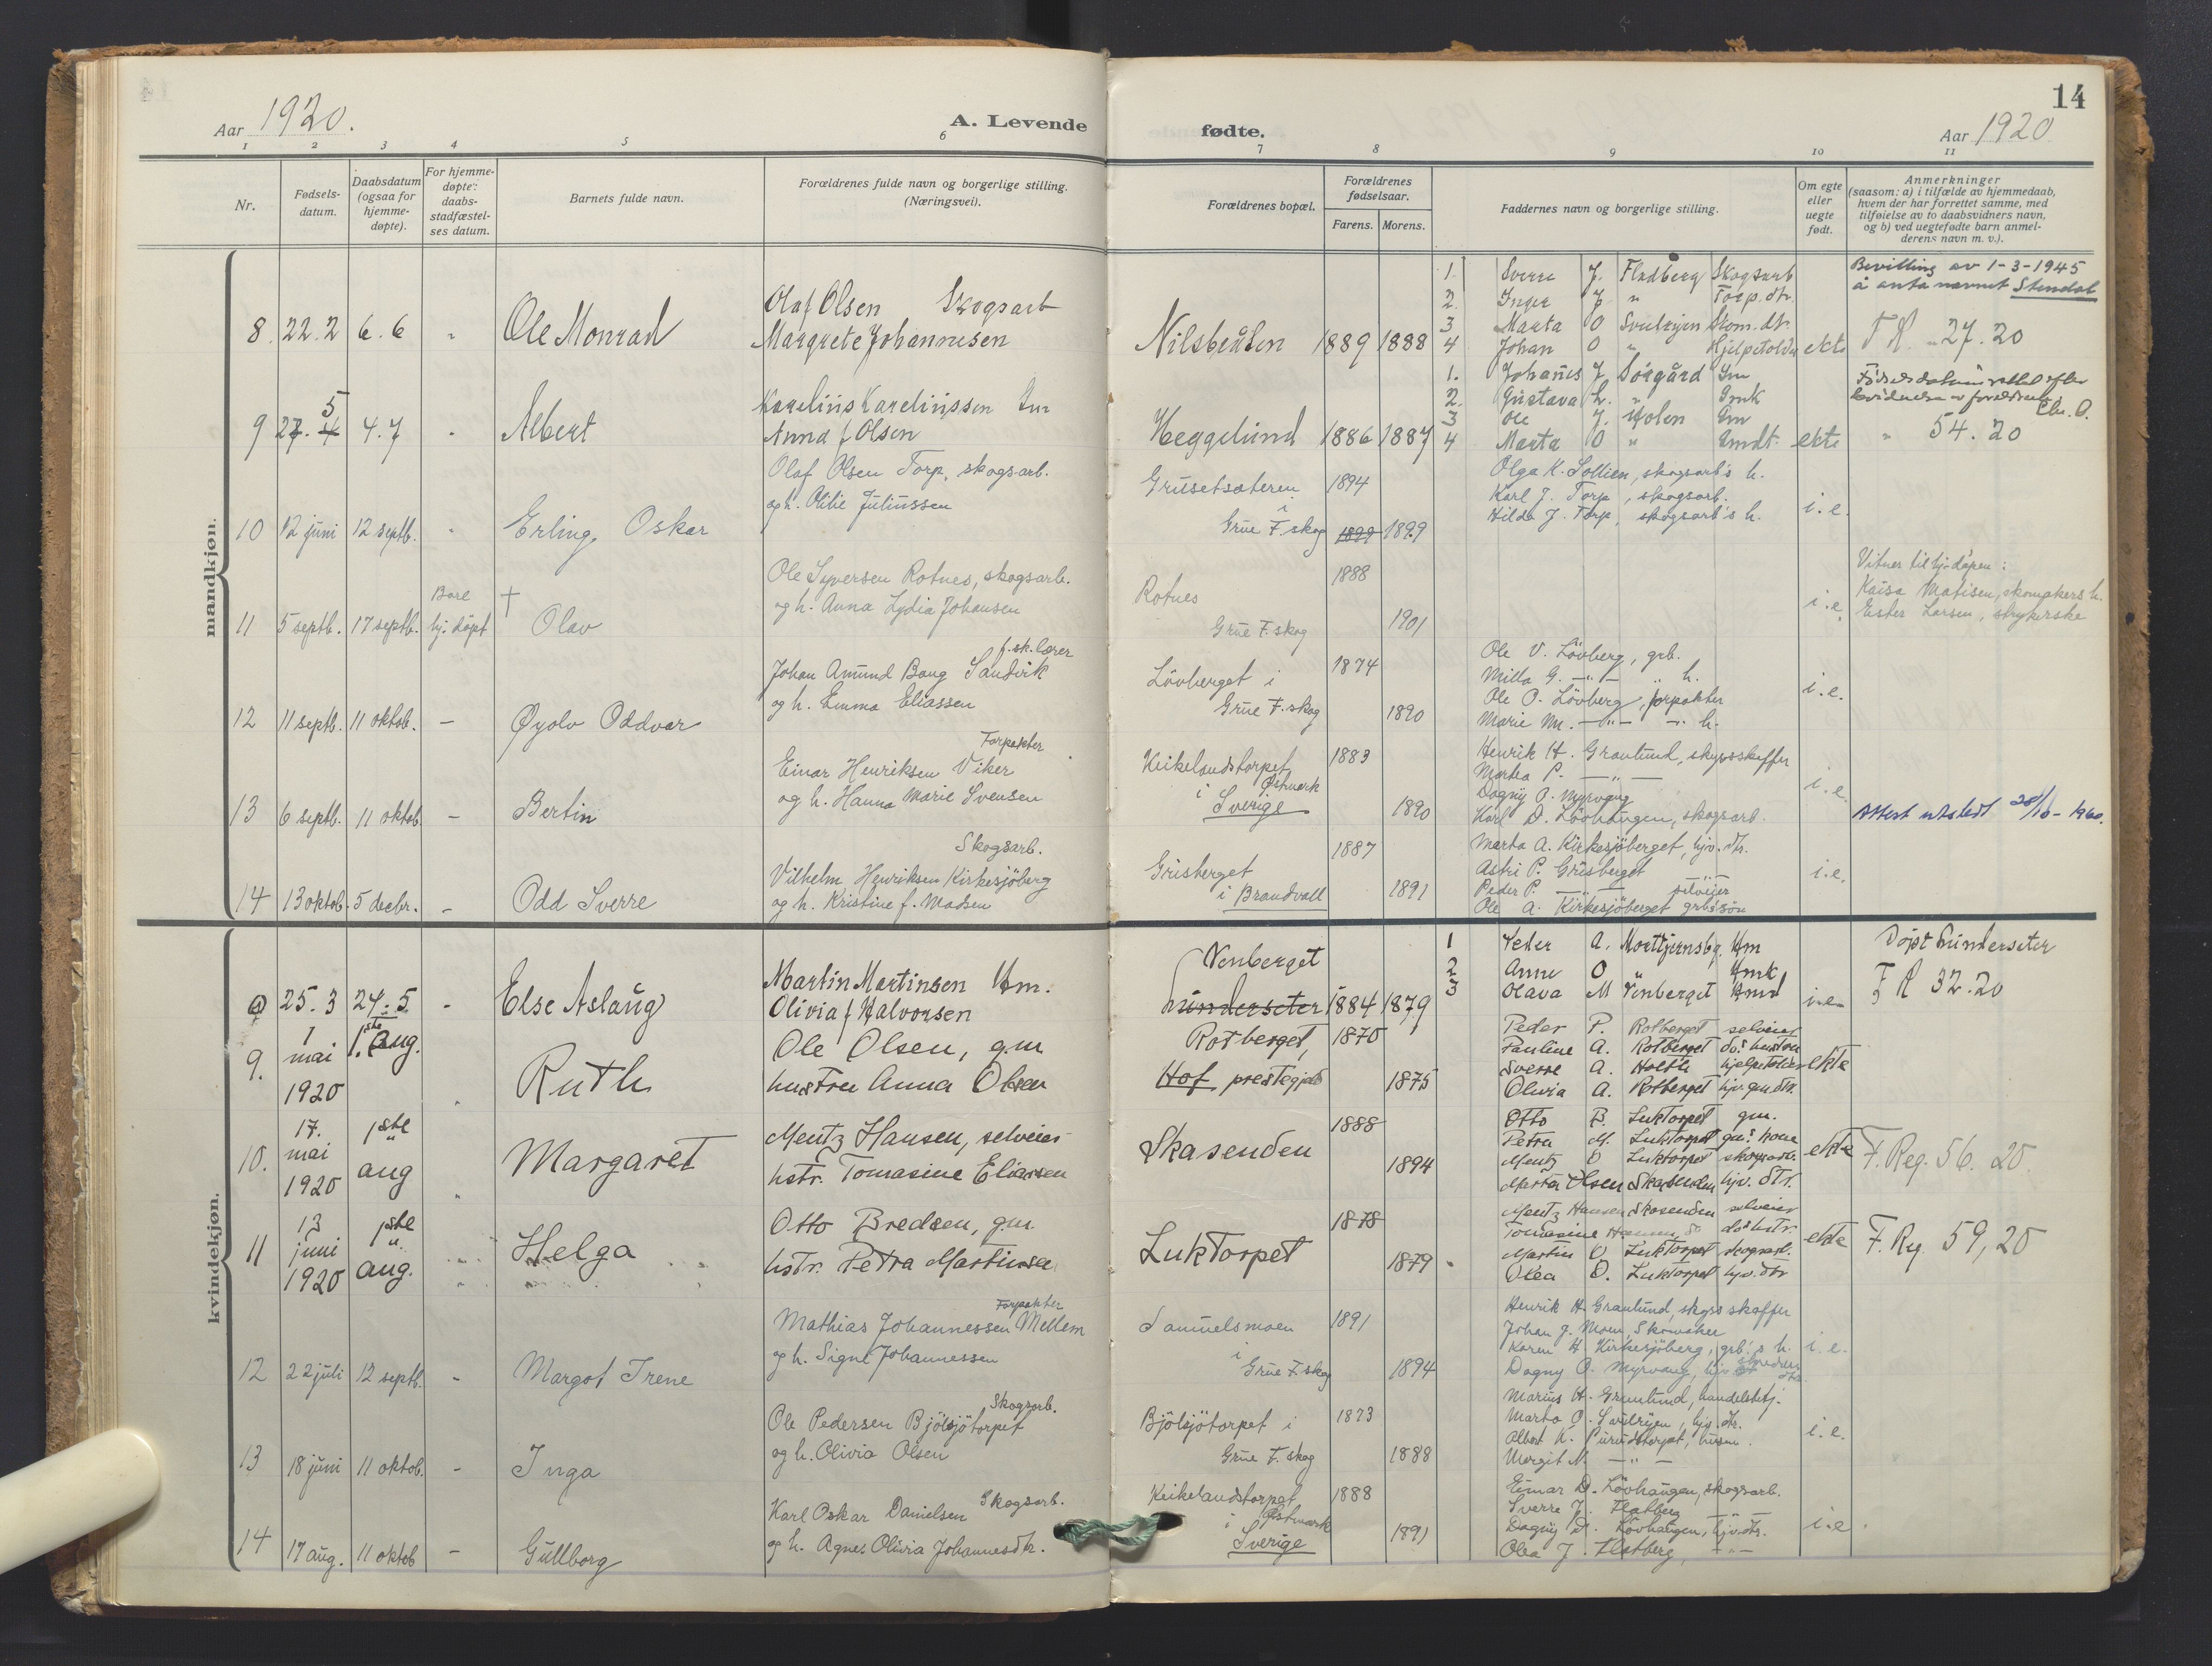 14
Aar 1920.
A. Levende
fødte.
Aar 1920
1 2 3 4 5 6
7 8 9 10 11
Nr.
Fødsels-
datum.
Daabsdatum
(ogsaa for
hjemme-
døpte).
For hjemme-
døpte:
daabs-
stadfæstel-
ses datum.
Barnets fulde navn.
Forældrenes fulde navn og borgerlige stilling.
(Næringsvei).
Forældrenes bopæl.
Forældrenes
fødselsaar.
Farens. Morens.
Faddernes navn og borgerlige stilling.
Om egte
eller
uegte
født.
Anmerkninger
(saasom: a) i tilfælde av hjemmedaab,
hvem der har forrettet samme, med
tilføielse av to daabsvidners navn,
og b) ved uegtefødte barn anmel-
derens navn m. v.).
mandkjøn.
8. 22.2 6.6 " Ole Monrad
Olaf Olsen Skogsarb
Margrete Johannesen
Nilsbeåsen 1889 1888
1. Sverre J. Fladberg Skogsarb
2. Inger J. " Torp. dtr.
3 Marta O Svulrijen Skom. dtr.
4 Johan O " Hjelpetolder
ekte
Bevilling av 1-3-1945
å anta navnet Stendal
F R. " 27.20
9 27. 4 5 4.7 " Albert
Karelius Kareliussen Gm
Anna f Olsen
Heggelund 1886 1887
1. Johanes J Sörgård Gm
2. Gustava L. " Gmk
3 Ole J. Holen Gm
4 Marta O " Gmdt.
ekte
" 54.20
10 12 juni 12 septb. " Erling Oskar
Olaf Olsen Torp, skogsarb.
og h. Otilie Juliussen
Grusetsæteren
i
Grue F. skog
1894 1899 1899
Olga K. Sollien, skogsarb's h.
Karl J. Torp, skogsarb.
Hilda J. Torp, skogsarb's h.
i.e.
11 5 septb. 17 septb. Bare
hj. döpt
† Olav
Ole Syversen Rotnes, skogsarb.
og h. Anna Lydia Johansen
Rotnes
Grue F. skog
1888 1901
i.e.
Vitner til hj.dåpen:
Kaisa Matisen, skomakers h.
Ester Larsen, strykerske
12 11 septb. 11 oktob. – Øyolv Oddvar
f. sk. lærer
Johan Amund Bang Sandvik
og h. Emma Eliassen
Lövberget i
Grue F. skog
1874 1890
Ole V. Lövberg, grb.
Milla G. –"– " h.
Ole O. Lövberg, forpakter
Marie M. –"– –" h.
i.e.
13 6 septb. 11 oktob. – Bertin
Forpakter
Einar Henriksen Viker
og h. Hanna Marie Svensen
Keikelandstorpet
i Østmark
Sverige
1883 1890
Henrik H. Granlund, skysskaffer
Martea P. –"–
Dagny O. Myrvang
Karl D. Lövhaugen, skogsarb.
i.e.
Attest utstedt 28/10-1960.
14 13 oktob. 5 decbr. – Odd Sverre
Skogsarb.
Vilhelm Henriksen Kirkesjöberg
og h. Kristine f. Madsen
Grisberget
i Brandvall
1887 1891
Marta A. Kirkesjöberget, hjv. dtr.
Astri P. Grisberget –"–
Peder P. –"– selveier
Ole A. Kirkesjöberget grb's sön
i.e.
kvindekjøn.
25.3 24.5 " Else Aslaug
Martin Martinsen Hm.
Olivia f Halvorsen
Venberget
Hunderseter
1884 1879
1 Peder A. Morttjernsbg. Hm
2 Anne O " Hmk
3 Olava M Venberget Hmd
i.e.
Döpt Hunderseter
F R 32.20
9. 1
mai
1920
1ste aug.
Ruth
Ole Olsen, gm
hustru Anna Olsen
Rotberget,
Hof prestegjeld
1870 1875
Peder P. Rotberget selveier
Pauline A. Rotberget do.s hustru
Sverre A. Holth hjelpetolder
Olivia A. Rotberget hjv. gm dtr.
ekte
10. 17.
mai
1920
1ste
aug
Margaret
Mentz Hansen, selveier
hstr. Tomasine Eliassen
Skasenden
1888 1894
Otto B. Luktorpet gm.
Petra M. Luktorpet gm's kone
Mentz O Luktorpet skogsarb.
Marta Olsen Skasenden hjv. dtr.
ekte
F. Reg. 56. 20.
11 13
juni
1920
1ste
aug.
Helga
Otto Bredsen, gm.
hstr. Petra Martinsen
Luktorpet
1878 1879
Mentz Hansen Skasenden selveier
Tomasine Hansen do do's hstr.
Martin O Luktorpet skogsarb.
Olea O. Luktorpet hjv. dtr
ekte
F. Reg. 59, 20
12 22 juli 12 septb. – Margot Irene
Forpakter
Mathias Johannessen Mellem
og h. Signe Johannessen
Samuelsmoen
i
Grue F. skog
1891 1894
Henrik H. Granlund, skyss skaffer
Johan J. Moen, Skomaker
Karen H. Kirkesjöberg, grb.'s h.
Dagny O. Myrvang,
i.e.
13 18 juni 11 oktob. – Inga
Skogsarb.
Ole Pedersen Bjölsjötorpet
og h. Olivia Olsen
Bjölsjötorpet i
Grue F. skog
1873 1888
Marius H. Granlund, handelsbetj.
Marta O. Svulrijen, hjv. dtr.
Albert K. Purustorpet, husm.
Margit N. –"–
i.e.
14 17 aug. 11 oktob – Gullborg
Karl Oskar Danielsen Skogsarb.
og h. Agnes Olivia Johannesdtr.
Keikelandstorpet
i Østmark
Sverige
1888 1891
Einar D. Lövhaugen, skogsarb.
Sverre J. Flatberg –"–
Dagny D. Lövhaugen, hjv. dtr.
Olea J. Flatberg, –"–
i.e.